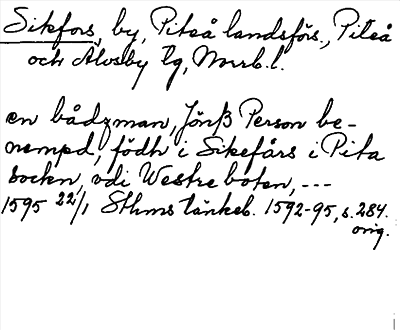 Sikfors, by, Piteå landsförs., Piteå
och Älvsby tg, Norrb. l.
en bådzman, Jönß Person be-
nempd, födh i Sikefårs i Pita
sockn, vdi Westre boten, ---
1595 22/1 Sthms tänkeb. 1592-95, s. 284.
orig.